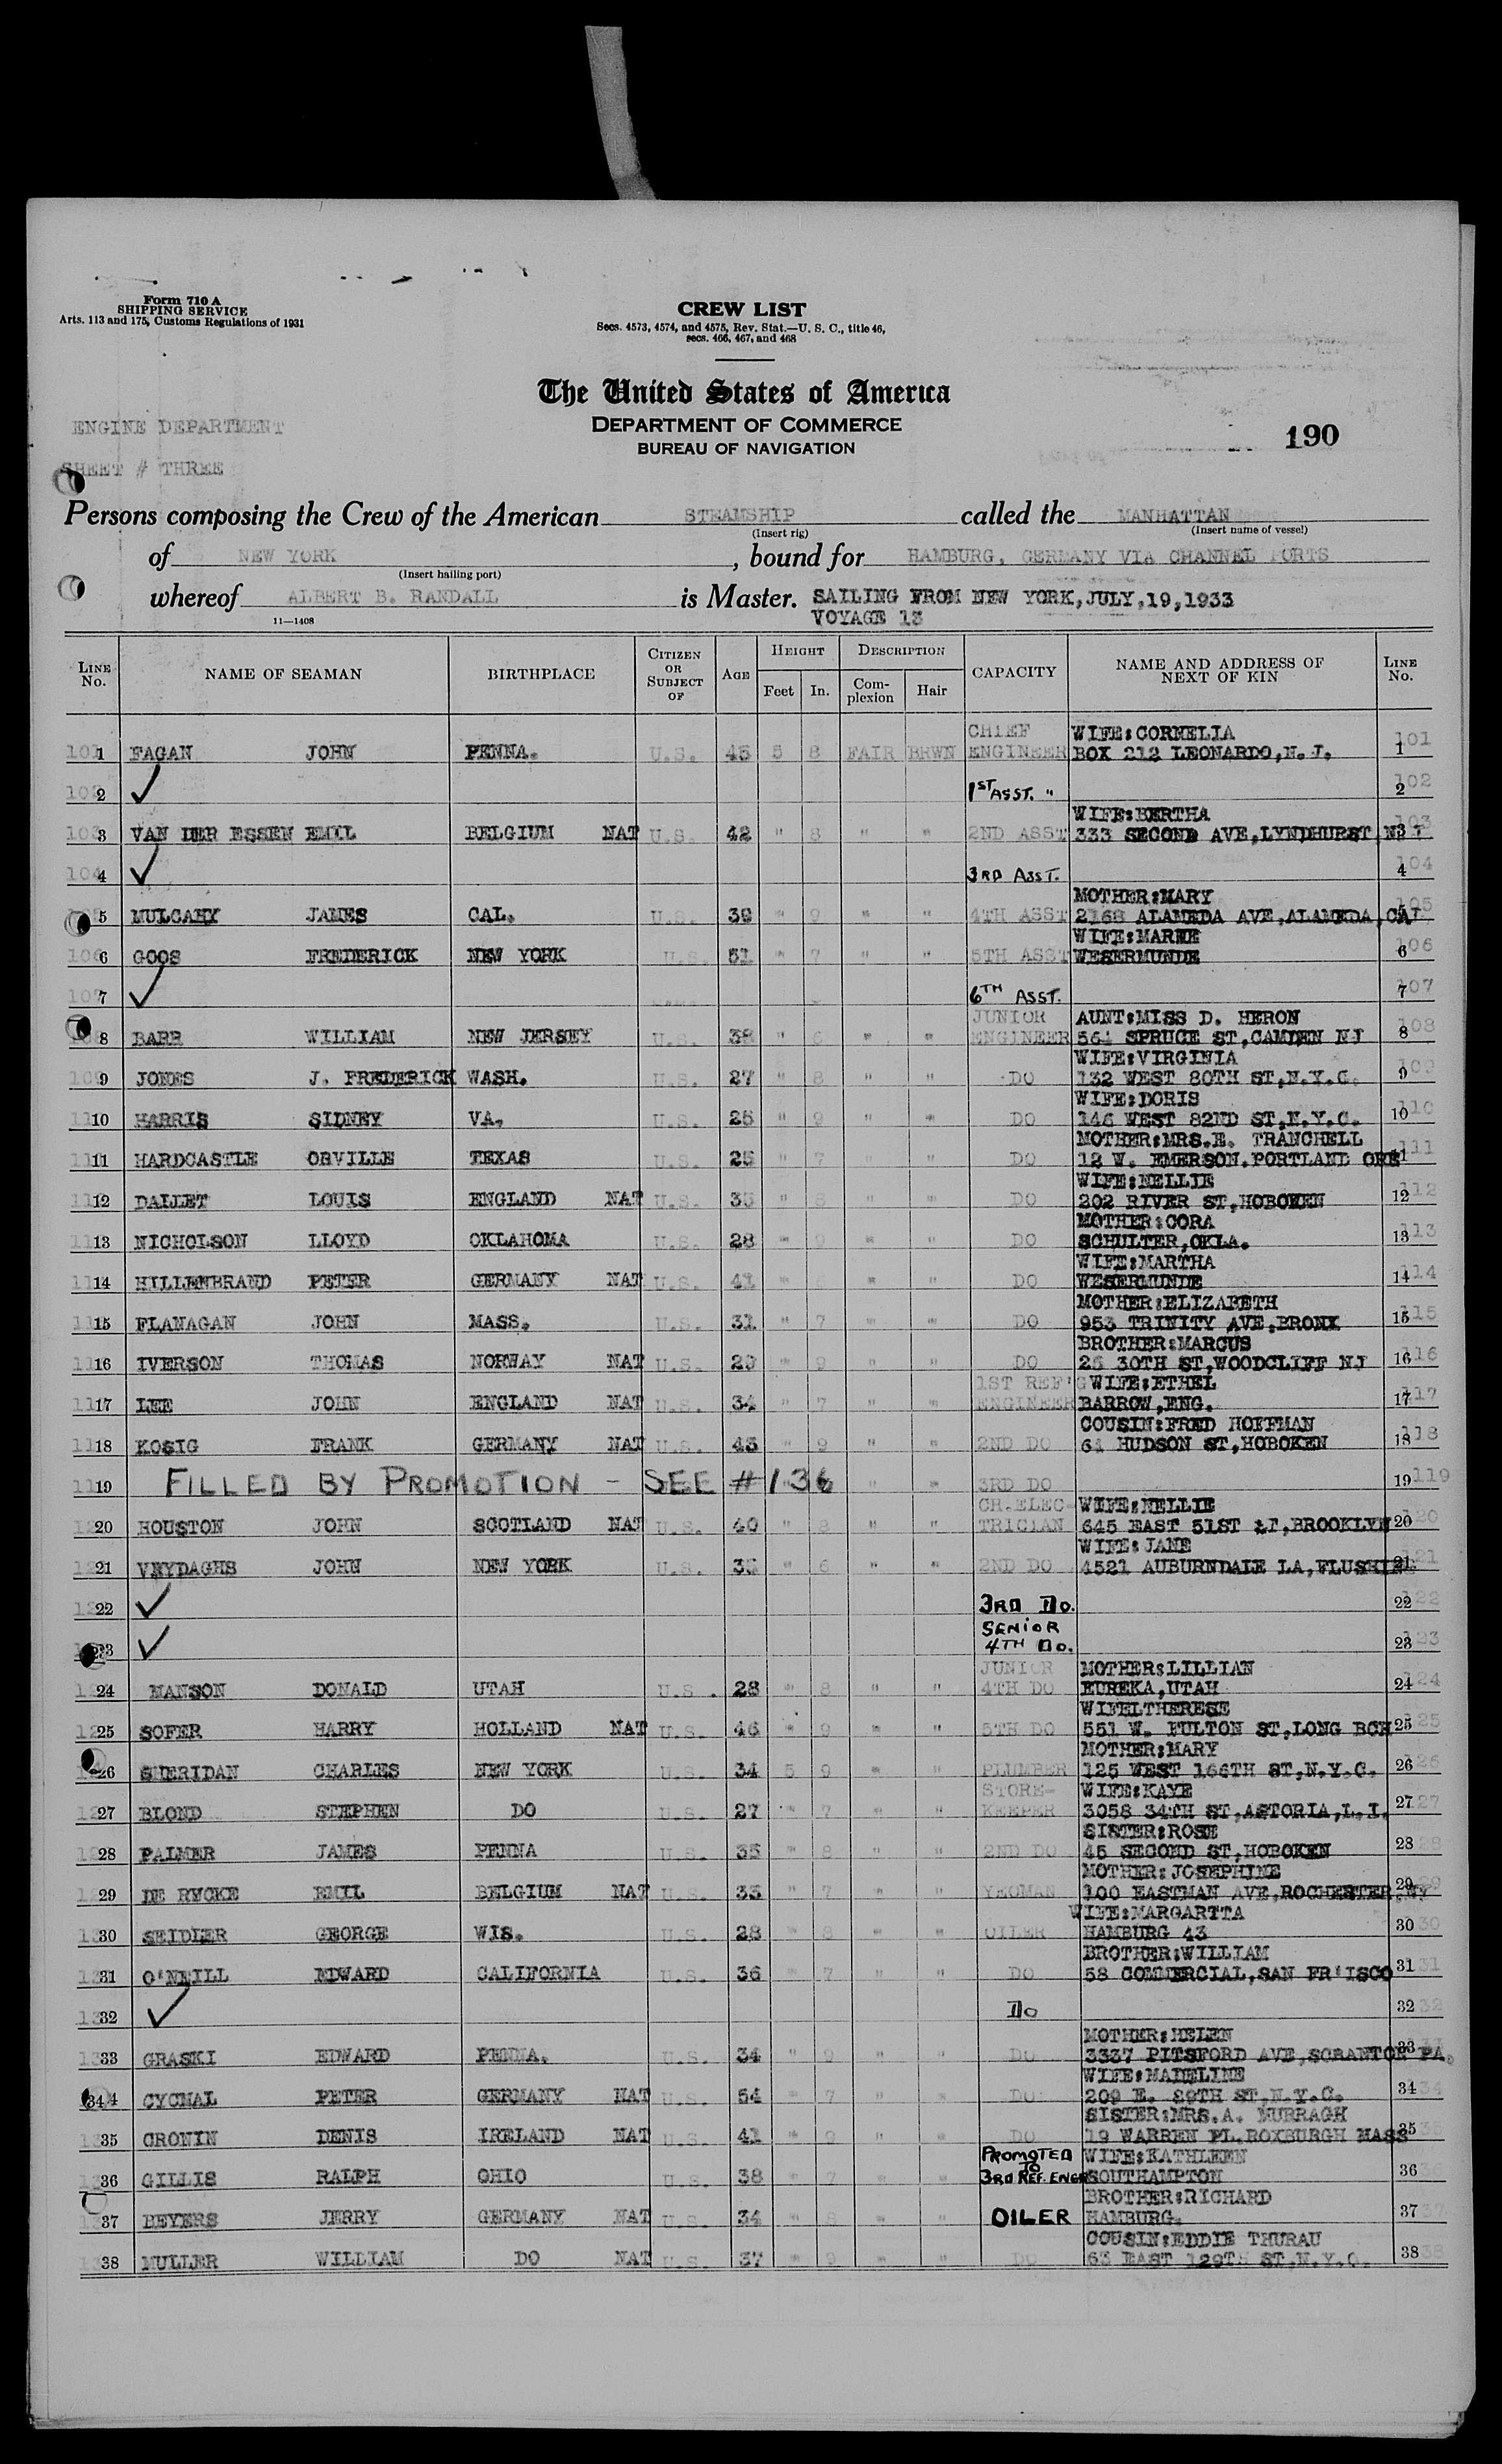 Form 710 A
SHIPPING SERVICE
Arts. 113 and 175, Customs Regulations of 1931
CREW LIST
Secs. 4573, 4574, and 4575, Rev. Stat.—U. S. C., title 46,
secs. 466, 467, and 468
The United States of America
DEPARTMENT OF COMMERCE
BUREAU OF NAVIGATION
190
ENGINE DEPARTMENT
SHEET # THREE
Persons composing the Crew of the American STEAMSHIP called the MANHATTAN
(Insert rig) (Insert name of vessel)
of NEW YORK, bound for HAMBURG, GERMANY VIA CHANNEL PORTS
(Insert hailing port)
whereof ALBERT B. RANDALL is Master. SAILING FROM NEW YORK,JULY,19,1933
11—1408 VOYAGE 13
LINE No. NAME OF SEAMAN BIRTHPLACE CITIZEN OR SUBJECT OF AGE HEIGHT Feet In. DESCRIPTION Complexion Hair CAPACITY NAME AND ADDRESS OF NEXT OF KIN LINE No.
CHIEF WIFE:CORNELIA
101 1 FAGAN JOHN PENNA. U.S. 45 5 8 FAIR BRWN ENGINEER BOX 212 LEONARDO,N.J. 1 101
102 2 ✓ 1ST ASST. " 2 102
WIFE:BERTHA
103 3 VAN DER ESSEN EMIL BELGIUM NAT U.S. 42 " 8 " " 2ND ASST 333 SECOND AVE,LYNDHURST,NJ 3 103
104 4 ✓ 3RD ASST. 4 104
MOTHER:MARY
5 MULCAHY JAMES CAL. U.S. 39 " 9 " " 4TH ASST 2168 ALAMEDA AVE,ALAMEDA,CAL 5 105
WIFE:MARIE
106 6 GOOS FREDERICK NEW YORK U.S. 51 " 7 " " 5TH ASST WESERMUNDE 6 106
107 7 ✓ 6TH ASST. 7 107
JUNIOR AUNT:MISS D. HERON
8 BARR WILLIAM NEW JERSEY U.S. 38 " 6 " " ENGINEER 561 SPRUCE ST,CAMDEN NJ 8 108
WIFE:VIRGINIA
109 9 JONES J. FREDERICK WASH. U.S. 27 " 8 " " DO 132 WEST 80TH ST,N.Y.C. 9 109
WIFE:DORIS
110 10 HARRIS SIDNEY VA. U.S. 25 " 9 " " DO 146 WEST 82ND ST,N.Y.C. 10 110
MOTHER:MRS.E. TRANCHELL
111 11 HARDCASTLE ORVILLE TEXAS U.S. 25 " 7 " " DO 12 W. EMERSON.PORTLAND ORE 11 111
WIFE:NELLIE
112 12 DALLET LOUIS ENGLAND NAT U.S. 35 " 8 " " DO 202 RIVER ST,HOBOKEN 12 112
MOTHER:CORA
113 13 NICHOLSON LLOYD OKLAHOMA U.S. 28 " 9 " " DO SCHULTER,OKLA. 13 113
WIFE:MARTHA
114 14 HILLENBRAND PETER GERMANY NAT U.S. 41 " 6 " " DO WESERMUNDE 14 114
MOTHER:ELIZABETH
115 15 FLANAGAN JOHN MASS. U.S. 31 " 7 " " DO 953 TRINITY AVE,BRONX 15 115
BROTHER:MARCUS
116 16 IVERSON THOMAS NORWAY NAT U.S. 29 " 9 " " DO 25 30TH ST,WOODCLIFF NJ 16 116
1ST REF'G WIFE:ETHEL
117 17 LEE JOHN ENGLAND NAT U.S. 34 " 7 " " ENGINEER BARROW,ENG. 17 117
COUSIN:FRED HOFFMAN
118 18 KOSIG FRANK GERMANY NAT U.S. 43 " 9 " " 2ND DO 61 HUDSON ST,HOBOKEN 18 118
119 19 FILLED BY PROMOTION - SEE #136 " " 3RD DO 19 119
CH.ELEC- WIFE:NELLIE
20 HOUSTON JOHN SCOTLAND NAT U.S. 40 " 8 " " TRICIAN 645 EAST 51ST ST,BROOKLYN 20 120
WIFE:JANE
21 VEYDAGHS JOHN NEW YORK U.S. 35 " 6 " " 2ND DO 4521 AUBURNDALE LA,FLUSHING 21 121
22 ✓ 3RD DO. 22 122
23 ✓ SENIOR 4TH DO. 23 123
JUNIOR MOTHER:LILLIAN
24 MANSON DONALD UTAH U.S. 28 " 8 " " 4TH DO EUREKA,UTAH 24 124
WIFELTHERESE
25 SOFER HARRY HOLLAND NAT U.S. 46 " 9 " " 5TH DO 551 W. FULTON ST,LONG BCH 25 125
MOTHER:MARY
26 SHERIDAN CHARLES NEW YORK U.S. 34 5 9 " " PLUMBER 125 WEST 166TH ST,N.Y.C. 26 126
STORE- WIFE:KAYE
27 BLOND STEPHEN DO U.S. 27 " 7 " " KEEPER 3058 34TH ST,ASTORIA,L.I. 27 127
SISTER:ROSE
28 PALMER JAMES PENNA U.S. 35 " 8 " " 2ND DO 45 SECOND ST,HOBOKEN 28 128
MOTHER:JOSEPHINE
29 DE RYCKE EMIL BELGIUM NAT U.S. 33 " 7 " " YEOMAN 100 EASTMAN AVE,ROCHESTER,NY 29
WIFE:MARGARTTA
30 SEIDLER GEORGE WIS. U.S. 28 " 8 " " OILER HAMBURG 43 30
BROTHER:WILLIAM
31 O'NEILL EDWARD CALIFORNIA U.S. 36 " 7 " " DO 58 COMMERCIAL,SAN FR'ISCO 31
32 ✓ DO 32
MOTHER:HELEN
33 GRASKI EDWARD PENNA. U.S. 34 " 9 " " DO 3337 PITSFORD AVE,SCRANTON PA. 33
WIFE:MADELINE
34 CYGNAL PETER GERMANY NAT U.S. 54 " 7 " " DO 209 E. 89TH ST,N.Y.C. 34
SISTER:MRS.A. MURRAGH
35 CRONIN DENIS IRELAND NAT U.S. 41 " 9 " DO 19 WARREN PL.ROXBURGH MASS 35
PROMOTED WIFE:KATHLEEN
36 GILLIS RALPH OHIO U.S. 38 " 7 " " TO 3RD REF. ENGR SOUTHAMPTON 36
BROTHER:RICHARD
37 BEYERS JERRY GERMANY NAT U.S. 34 " 8 " " OILER HAMBURG. 37
COUSIN:EDDIE THURAU
38 MULLER WILLIAM DO NAT U.S. 37 " 9 " " DO 63 EAST 129TH ST,N.Y.C. 38